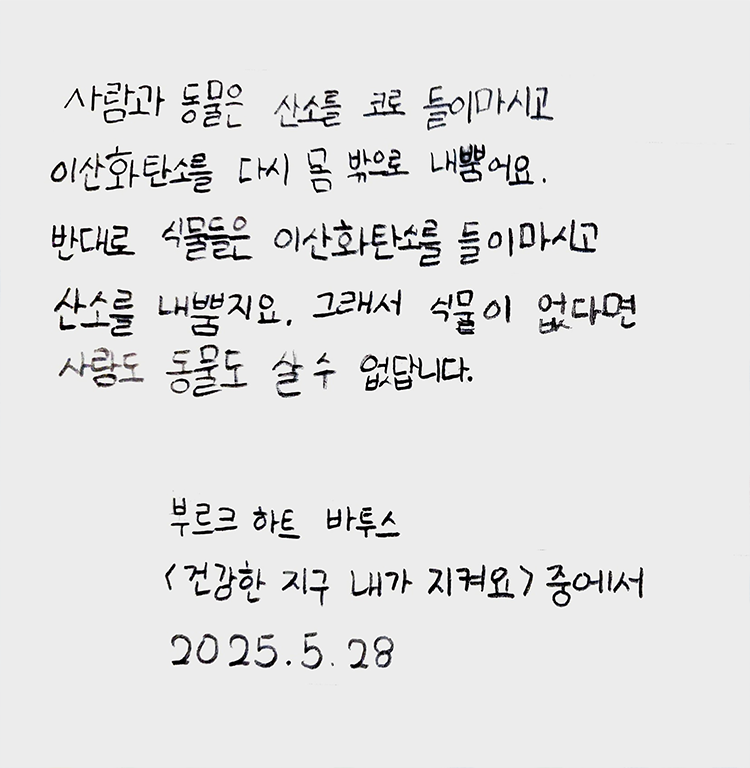 사람과 동물은 산소를 코로 들이마시고
이산화탄소를 다시 몸 밖으로 내뿜어요.
반대로 식물들은 이산화탄소를 들이마시고
산소를 내뿜지요. 그래서 식물이 없다면
사람도 동물도 살 수 없답니다.
부르크하트 바투스
<건강한 지구 내가 지켜요> 중에서
2025.5.28